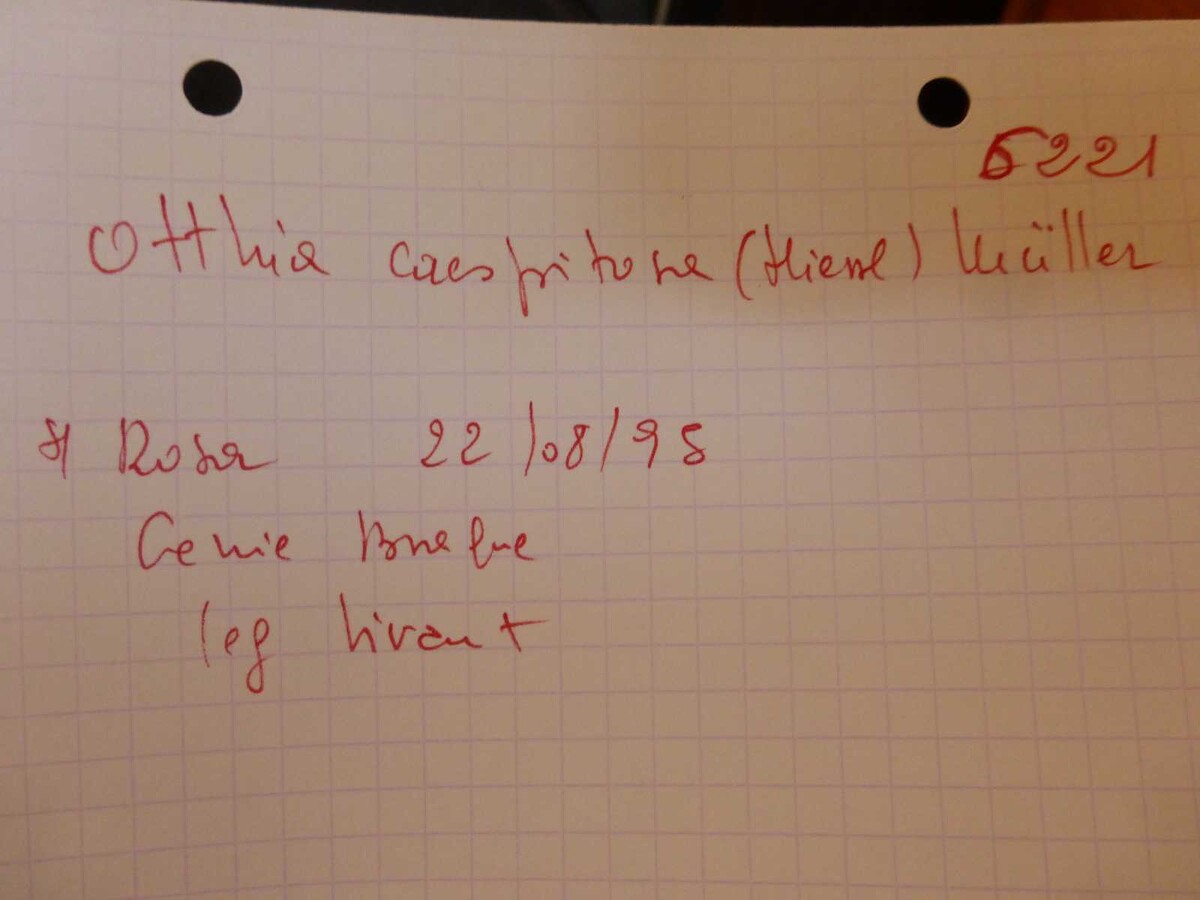 5221
Otthia caespitosa (Niessl) Müller
s/ Rosa 22/08/95
Genie Braque
leg Vivant